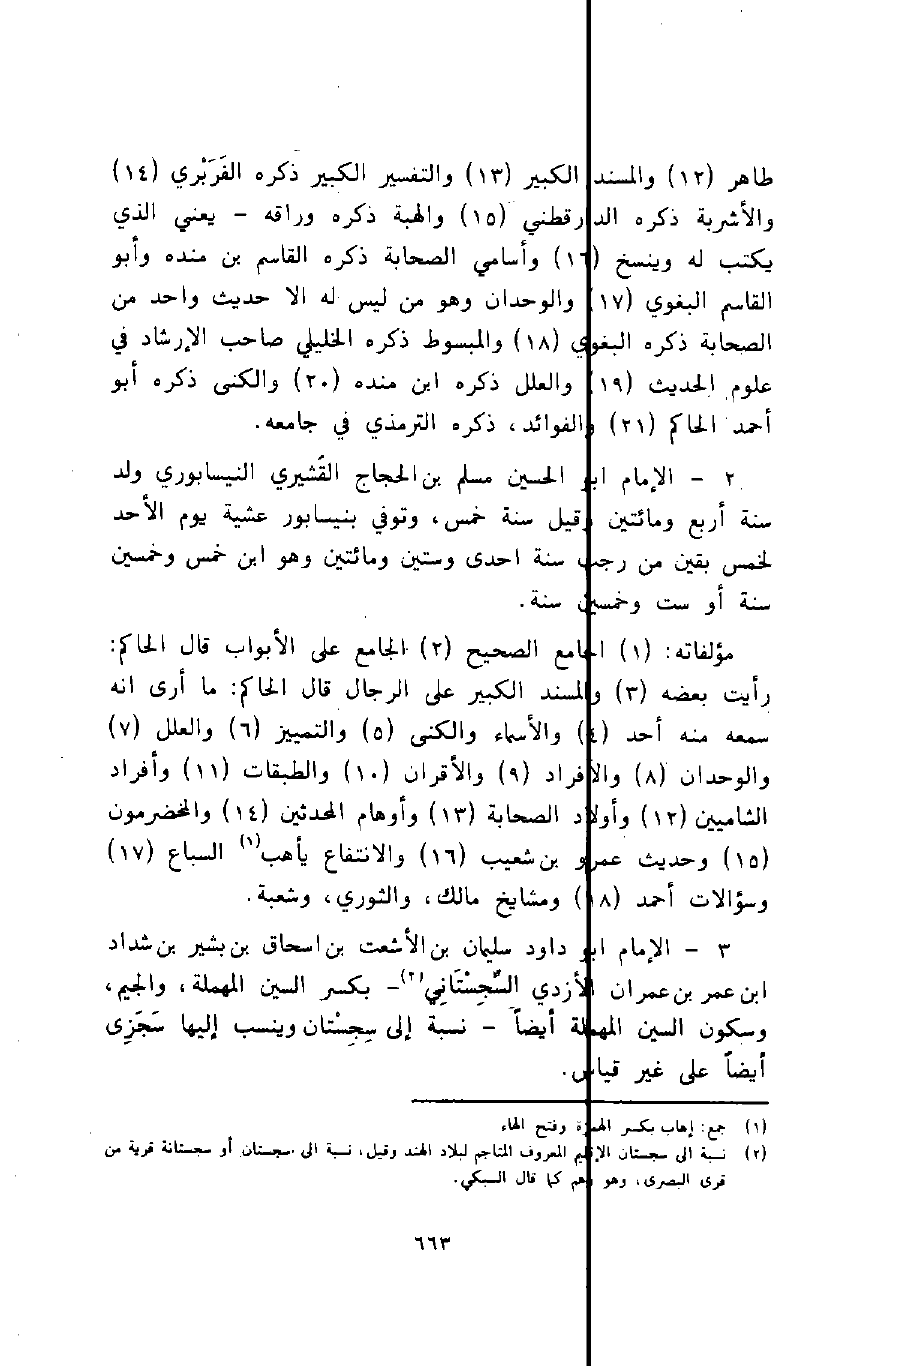 طاهر (١٢) والمسند الكبير (١٣) والتفسير الكبير ذكره الفَرَبْري (١٤)
والأشربة ذكره الدارقطني (١٥) والهبة ذكره وراقه - يعني الذي
يكتب له وينسخ (١٦) وأسامي الصحابة ذكره القاسم بن منده وأبو
القاسم البغوي (١٧) والوحدان وهو من ليس له الا حديث واحد من
الصحابة ذكره البغوي (١٨) والمبسوط ذكره الخليلي صاحب الإرشاد في
علوم الحديث (١٩) والعلل ذكره ابن منده (٢٠) والكنى ذكره أبو
أحمد الحاكم (٢١) والفوائد، ذكره الترمذي في جامعه.
٢ - الإمام ابو الحسين مسلم بن الحجاج القُشيري النيسابوري ولد
سنة أربع ومائتين وقيل سنة خمس، وتوفي بنيسابور عشية يوم الأحد
لخمس بقين من رجب سنة احدى وستين ومائتين وهو ابن خمس وخمسين
سنة أو ست وخمسين سنة.
مؤلفاته: (١) الجامع الصحيح (٢) الجامع على الأبواب قال الحاكم:
رأيت بعضه (٣) والمسند الكبير على الرجال قال الحاكم: ما أرى انه
سمعه منه أحد (٤) والأسماء والكنى (٥) والتمييز (٦) والعلل (٧)
والوحدان (٨) والأفراد (٩) والأقران (١٠) والطبقات (١١) وأفراد
الشاميين (١٢) وأولاد الصحابة (١٣) وأوهام المحدثين (١٤) والمخضرمون
(١٥) وحديث عمرو بن شعيب (١٦) والانتفاع بأهب(١) السباع (١٧)
وسؤالات أحمد (١٨) ومشايخ مالك، والثوري، وشعبة.
٣ - الإمام ابو داود سليمان بن الأشعت بن اسحاق بن بشير بن شداد
ابن عمر بن عمران الأزدي السِّجِسْتَانِي(٢) - بكسر السين المهملة، والجيم،
وسكون السين المهملة أيضاً - نسبة إلى سِجِسْتان وينسب إليها سَجَزِى
أيضاً على غير قياس.
(١) جمع: إهاب بكسر الهمزة وفتح الهاء
(٢) نسبة الى سجستان الإقليم المعروف المتاجم لبلاد الهند وقيل، نسبة الى سجستان أو سجستانة قرية من
قرى البصرى، وهو وهم كما قال السبكي.
٦٦٣